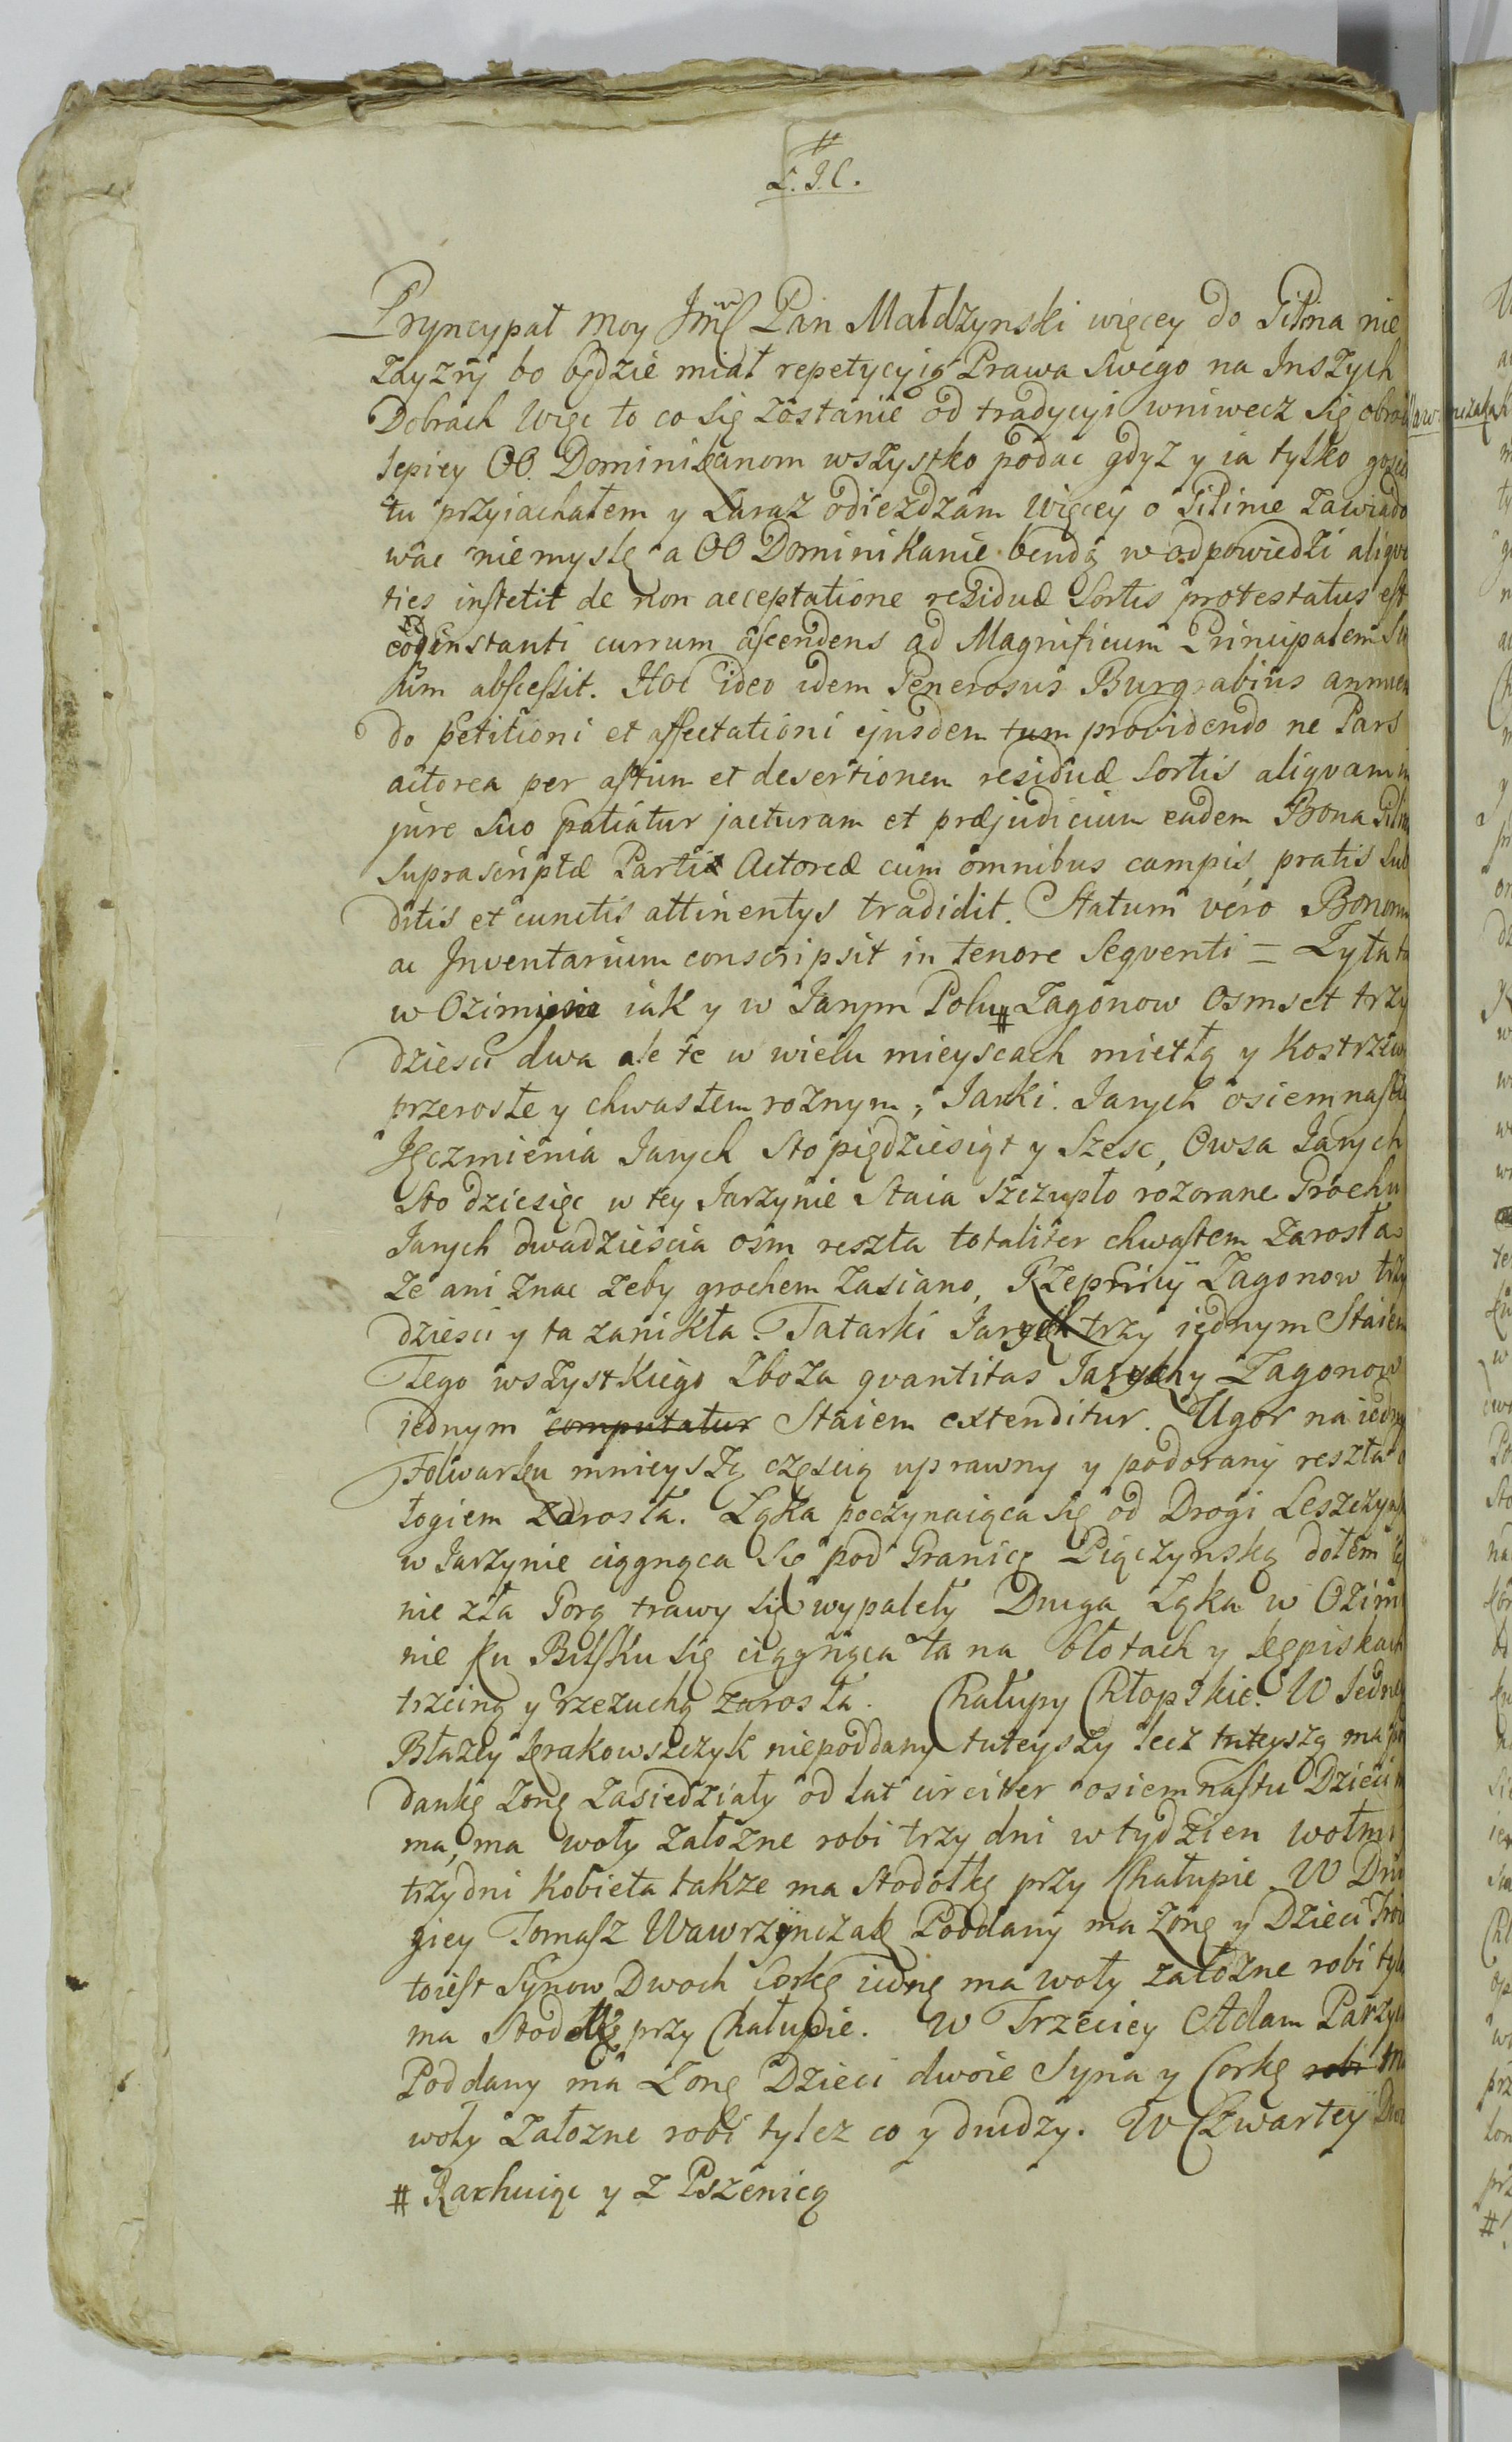 #
L. J. C.
Pryncypał moy Jmć Pan Małdzynski więcey do Gilina nie
zayzry bo będzie miał repetycyią Prawa swego na Inszych
Dobrach więc to co się zostanie od tradycyi wniwecz się
lepiey OO. Dominikanom wszystko podac gdyz y ia tylko
tu przyiachałem y zaraz odiezdzam więcey o Gilinie zawiado
wac niemyslę a OO Dominikanie bendą w odpowiedzi aliquo
ties institit de non acceptatione residuæ Sortis protestatus est
eoq instanti currum ascendens ad Magnificum Principalem Su
um abscessit. Hoc ideo idem Generosus Burgrabius annuen
do petitioni et affectationi ejusdem tum providendo ne Pars
actorea per astum et desertionem residuæ Sortis aliqvam in
jure suo patiatur jacturam et præjudicium eadem Bona
suprascriptæ Parti Actoreæ cum omnibus campis, pratis sub
ditis et cunctis attinentys tradidit. Statum vero Bonorum
ac Inventarium conscripsit in tenore seqventi = Zyta
w Oziminie iak y w Jarym Polu # Zagonow osmset trzy
dziesci dwa ale te w wielu mieyscach mietłą y Kostrzewą
przerosłe y chwastem roznym, Jarki Jarych osiemnascie
Jęczmienia Jarych sto piędziesiąt y szesc, Owsa Jarych
sto dziesięc w tey Jarzynie staia szczupło rozorane Grochu
Jarych dwadziescia osm reszta totaliter chwastem zarosła
ze ani znac zeby grochem zasiano, Rzepnicy Zagonow trzy
dziesci y ta zanikła. Tatarki trzy iednym Staiem
Tego wszystkiego zboza qvantitas Zagonow
iednym computatur Staiem extenditur. Ugor na
Folwarku mnieyszą częscią uprawny y podorany reszta
łogiem zarosła. Łąka poczynaiąca się od Drogi
w Jarzynie ciągnąca się pod Granicę Piączynską dołem
nie zła Gorą trawy się wypalełY Druga Łąka w Ozimi
nie ku Bilsku się ciągnąca ta na błotach y kępiskach
trzciną y rzezuchą zarosła. Chałupy Chłopskie. W Jedney
Błazey Krakowszczyk niepoddany tuteyszy lecz tuteyszą ma
dankę Zonę zasiedziały od lat circiter osiemnastu Dzieci
ma, ma woły załozne robi trzy dni w tydzien wołmi
trzy dni Kobieta takze ma stodołkę przy Chałupie. W Dru
giey Tomasz Wawrzynczak Poddany ma Zonę y Dzieci Troie
toiest Synow Dwoch Corkę iednę ma woły załozne robi tylez
ma stodołkę przy Chałupie. W Trzeciey Adam
Poddany ma Zonę Dzieci dwoie Syna y Corkę robi ma
woły załozne robi tylez co y drudzy. W Czwartey
# Rachuiąc y z Pszenicą